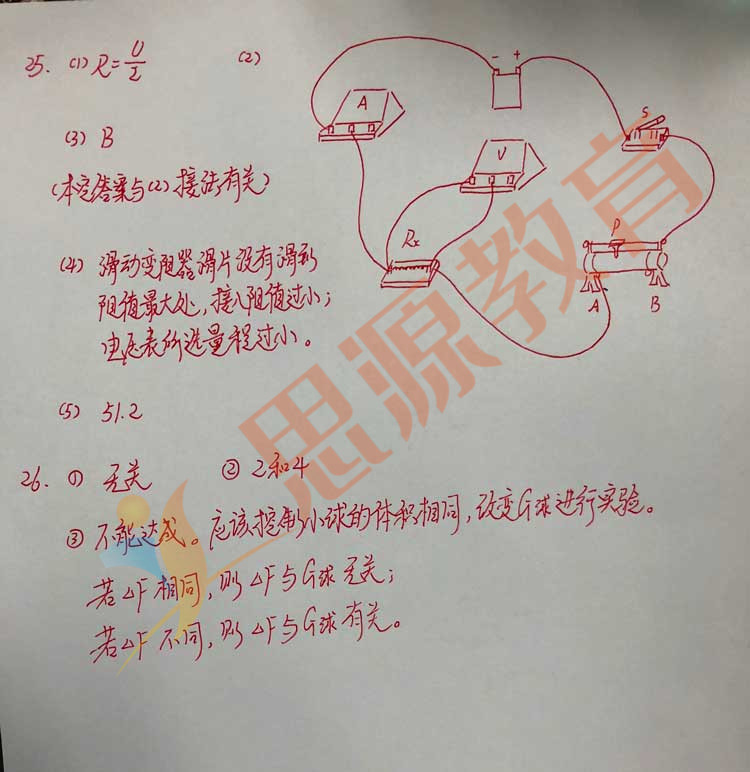 25. (1) R=U/I (2)
(3) B
(本空答案与(2)接法有关)
(4) 滑动变阻器滑片没有滑到
阻值最大处,接入阻值过小;
电压表所选量程过小。
(5) 51.2
- +
A
S
V
Rx
P
A B
26. ① 无关 ② 2和4
③ 不能达成。应该控制小球的体积相同,改变G球进行实验。
若△F相同,则△F与G球无关;
若△F不同,则△F与G球有关。
思源教育